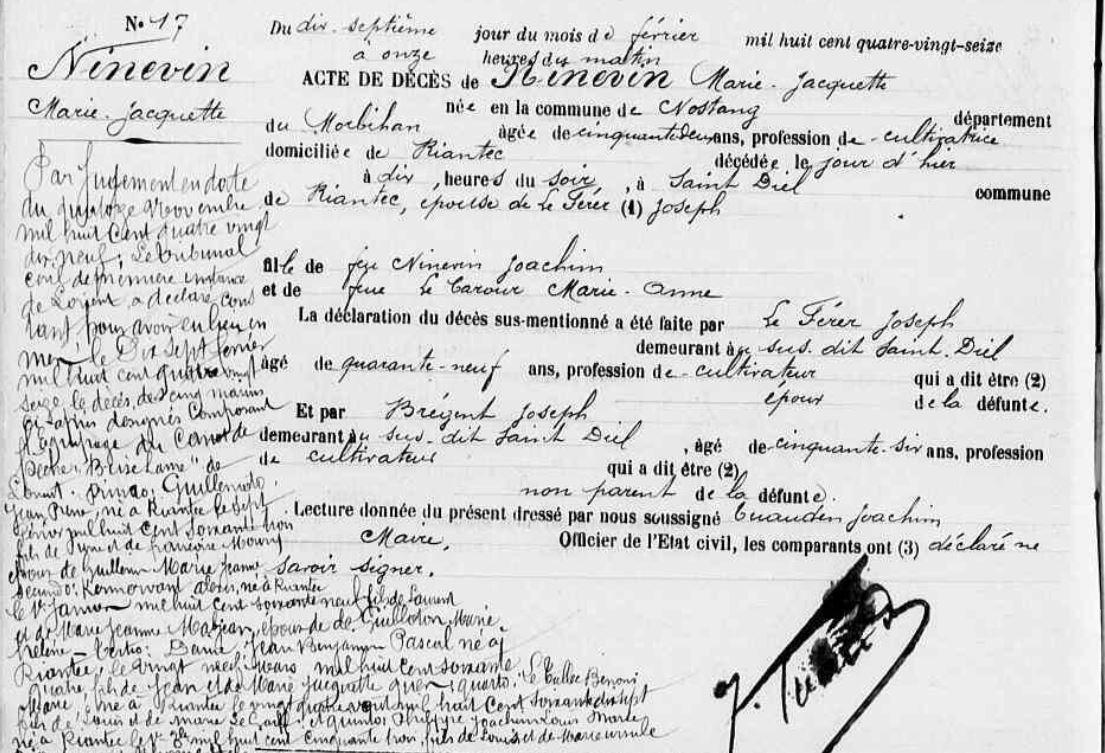 N° 17
Ninevin
Marie-Jacquette
Du dix-septième jour du mois de février mil huit cent quatre-vingt-seize
à onze heures du matin
ACTE DE DÉCÈS de Ninevin Marie-Jacquette
née en la commune de Nostang département
du Morbihan âgée de cinquante deux ans, profession de cultivatrice
domiciliée de Riantec décédée le jour d'hier
à dix heures du soir, à Saint Diel commune
de Riantec, épouse de Le Férer (1) Joseph
fille de feu Ninevin Joachim
et de feue Le Marie-Anne
La déclaration du décès sus-mentionné a été faite par Le Férer Joseph
demeurant au sus-dit Saint-Diel
âgé de quarante-neuf ans, profession de cultivateur qui a dit être (2)
époux de la défunte.
Et par Brégent Joseph
demeurant au sus-dit Saint Diel, âgé de cinquante-six ans, profession
de cultivateur qui a dit être (2)
non parent de la défunte.
Lecture donnée du présent dressé par nous soussigné Joachim
Maire, Officier de l'Etat civil, les comparants ont (3) déclaré ne
savoir signer.
Par Jugement en date
du quatorze Novembre
mil huit cent quatre vingt
dix neuf, Le tribunal
civil de première instance
de Lorient a déclaré cons
tant pour avoir eu lieu en
mer, le Dix sept février
mil huit cent quatre vingt
seize le décès des cinq marins
ci-après désignés composant
l'équipage du Canot de
pêche "Brise Lame" de
Lorient. Primo: Guillemoto
Jean Pierre, né à Riantec le sept
mil huit cent soixante trois
fils de et de
époux de Guillemo Marie Jeanne
secundo: Kermorvant Alexis, né à Riantec
le 1er Janvier mil huit cent soixante neuf fils de Laurent
et de Marie Jeanne Madjean, époux de Guilloton Marie
Hélène - Tertio: Jean Benjamin Pascal né à
Riantec, le vingt neuf mars mil huit cent soixante
quatre, fils de Jean et de Marie Jacquette quarto: Le Benoni
Marie né à Riantec le vingt quatre mil huit cent soixante dix sept
fils de Louis et de Marie Le et quinto: Joachim Louis Marie
né à Riantec le 1er mil huit cent cinquante trois, fils de Louis et de Marie Ursule